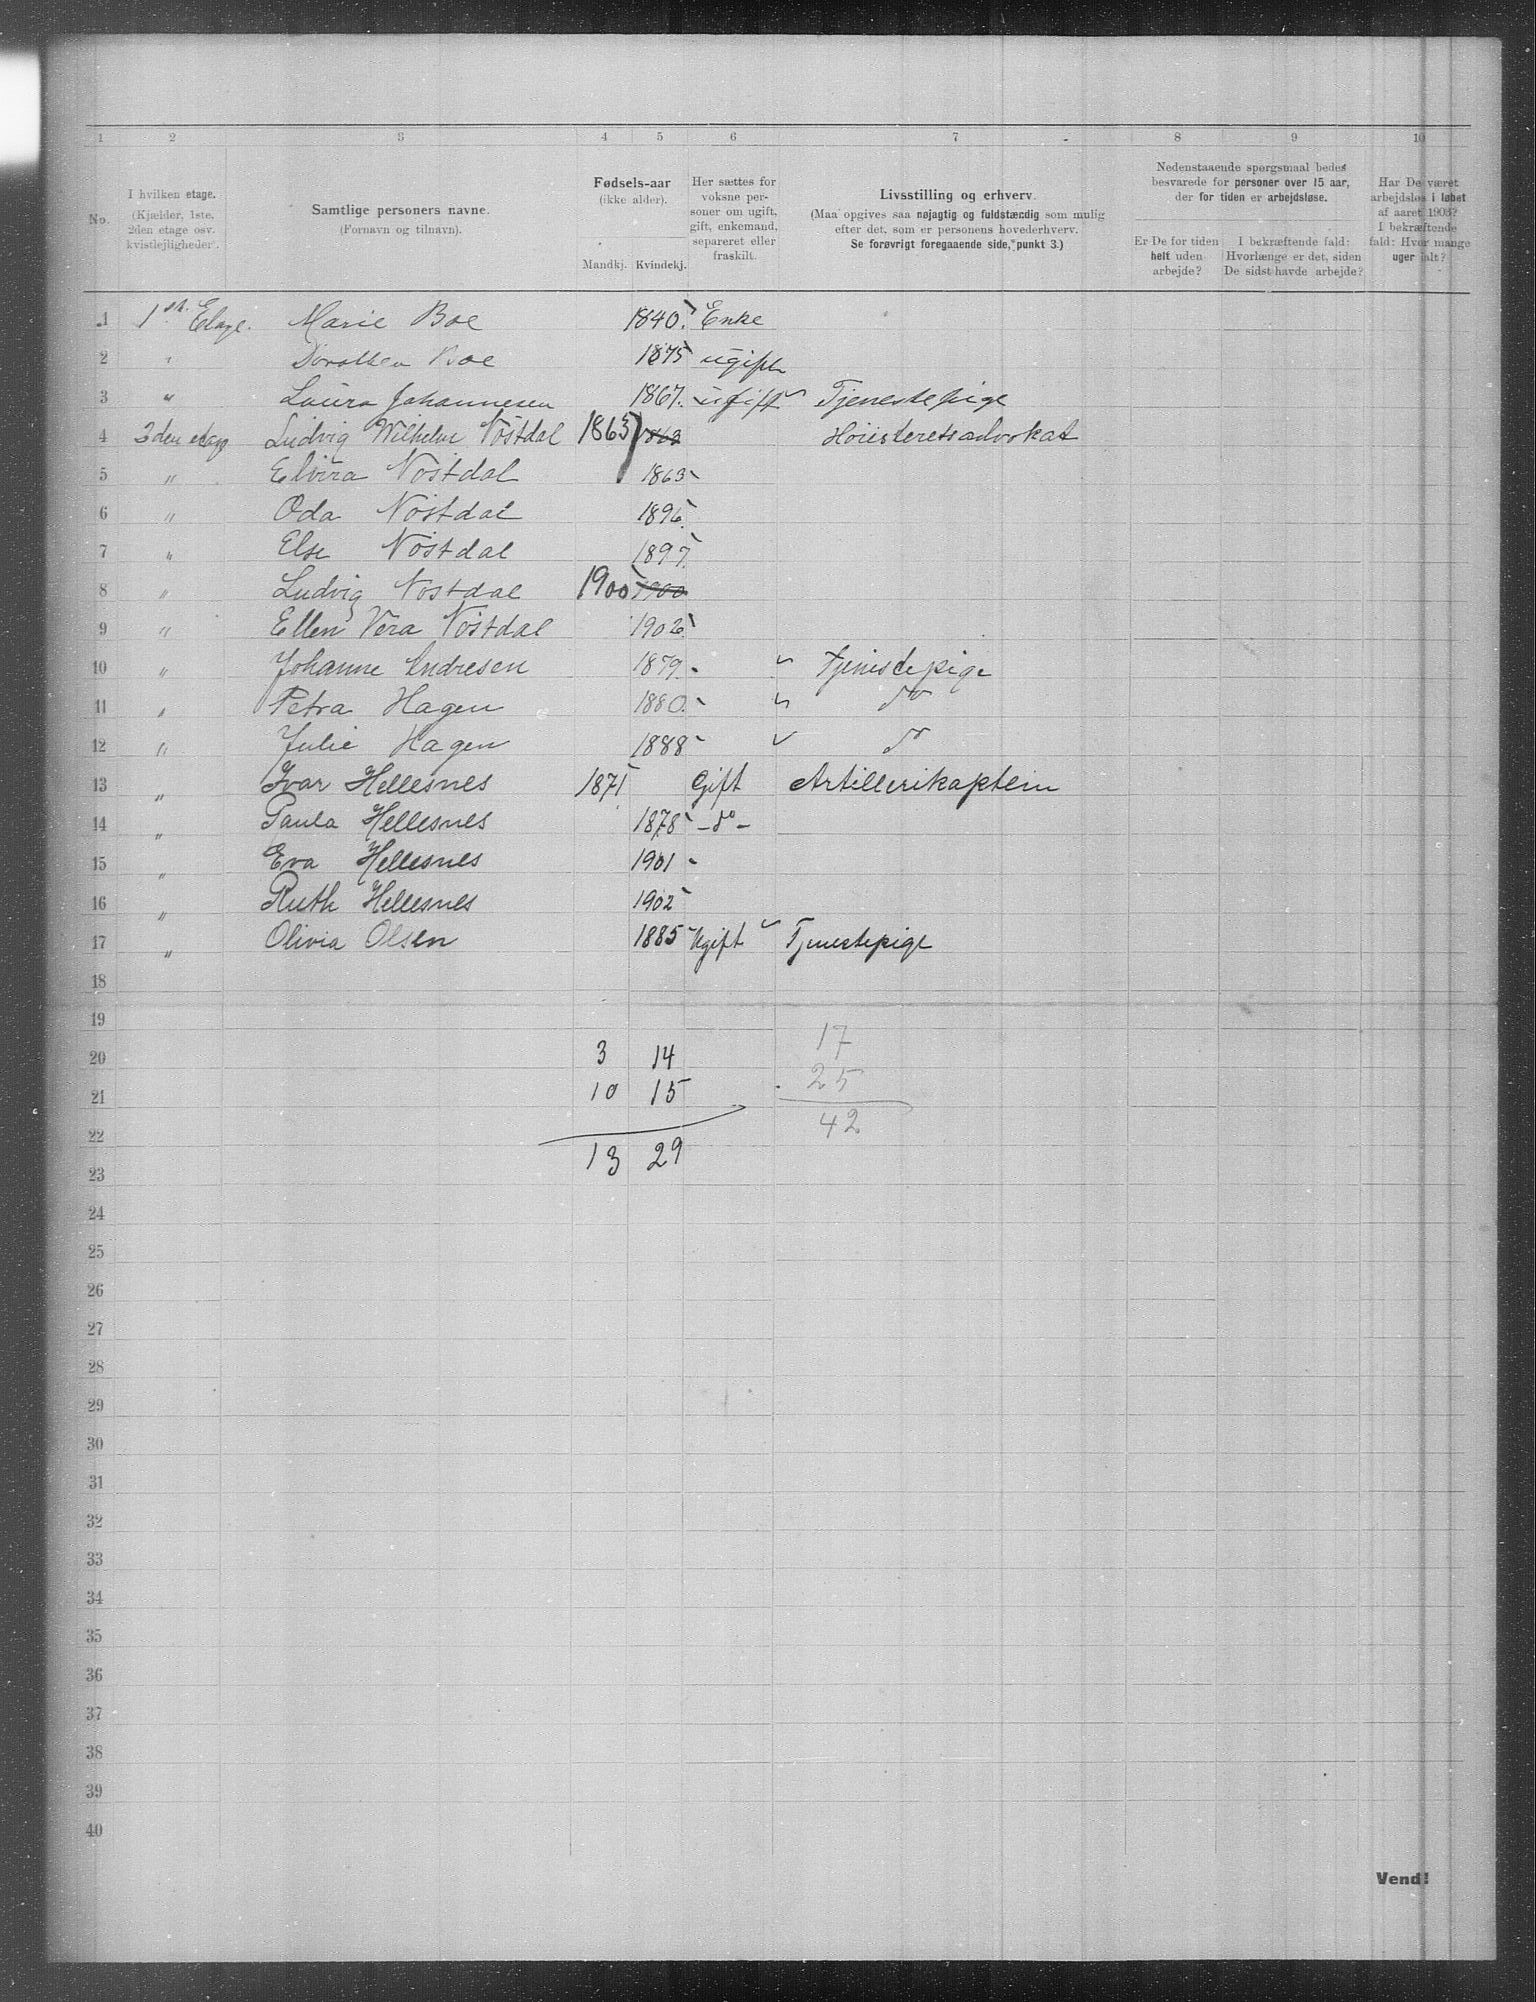 1 2 3 4 5 6 7 8 9 10
No.
I hvilken etage.
(Kjælder, 1ste.
2den etage osv.
kvistlejligheder).
Samtlige personers navne.
(Fornavn og tilnavn).
Fødsels-aar
(ikke alder).
Mandkj. Kvindekj.
Her sættes for
voksne per-
soner om ugift,
gift, enkemand,
separeret eller
fraskilt.
Livsstilling og erhverv.
(Maa opgives saa nøjagtig og fuldstændig som mulig
efter det, som er personens hovederhverv.
Se forøvrigt foregaaende side, punkt 3.)
Nedenstaaende spørgsmaal bedes
besvarede for personer over 15 aar,
der for tiden er arbejdsløse.
Er De for tiden
helt uden
arbejde?
I bekræftende fald:
Hvorlænge er det, siden
De sidst havde arbejde?
Har De været
arbejdsløs i løbet
af aaret 1903?
I bekræftende
fald: Hvor mange
uger ialt?
1 1ste Etage. Marie Boe 1840. Enke
2 " Dorothea Boe 1875 ugift
3 " Laura Johannesen 1867. ugift Tjenestepige
4 3den etage Ludvig Wilhelm Nöstdal 1863 1863 Höiesteretsadvokat
5 " Elvira Nöstdal 1863
6 " Oda Nöstdal 1896.
7 " Else Nöstdal 1897.
8 " Ludvig Nöstdal 1900 1900
9 " Ellen Vera Nöstdal 1902.
10 " Johanne Andresen 1879. Tjenistepige
11 " Petra Hagen 1880. do
12 " Julie Hagen 1888 do
13 " Ivar Hellesnes 1871 Gift Artillerikaptein
14 " Paula Hellesnes 1878 - do -
15 " Eva Hellesnes 1901
16 " Ruth Hellesnes 1902
17 " Olivia Olsen 1885 Ugift Tjenestepige
18
19
20 3 14 17
21 10 15 25
22 42
23 13 29
24
25
26
27
28
29
30
31
32
33
34
35
36
37
38
39
40
Vend!